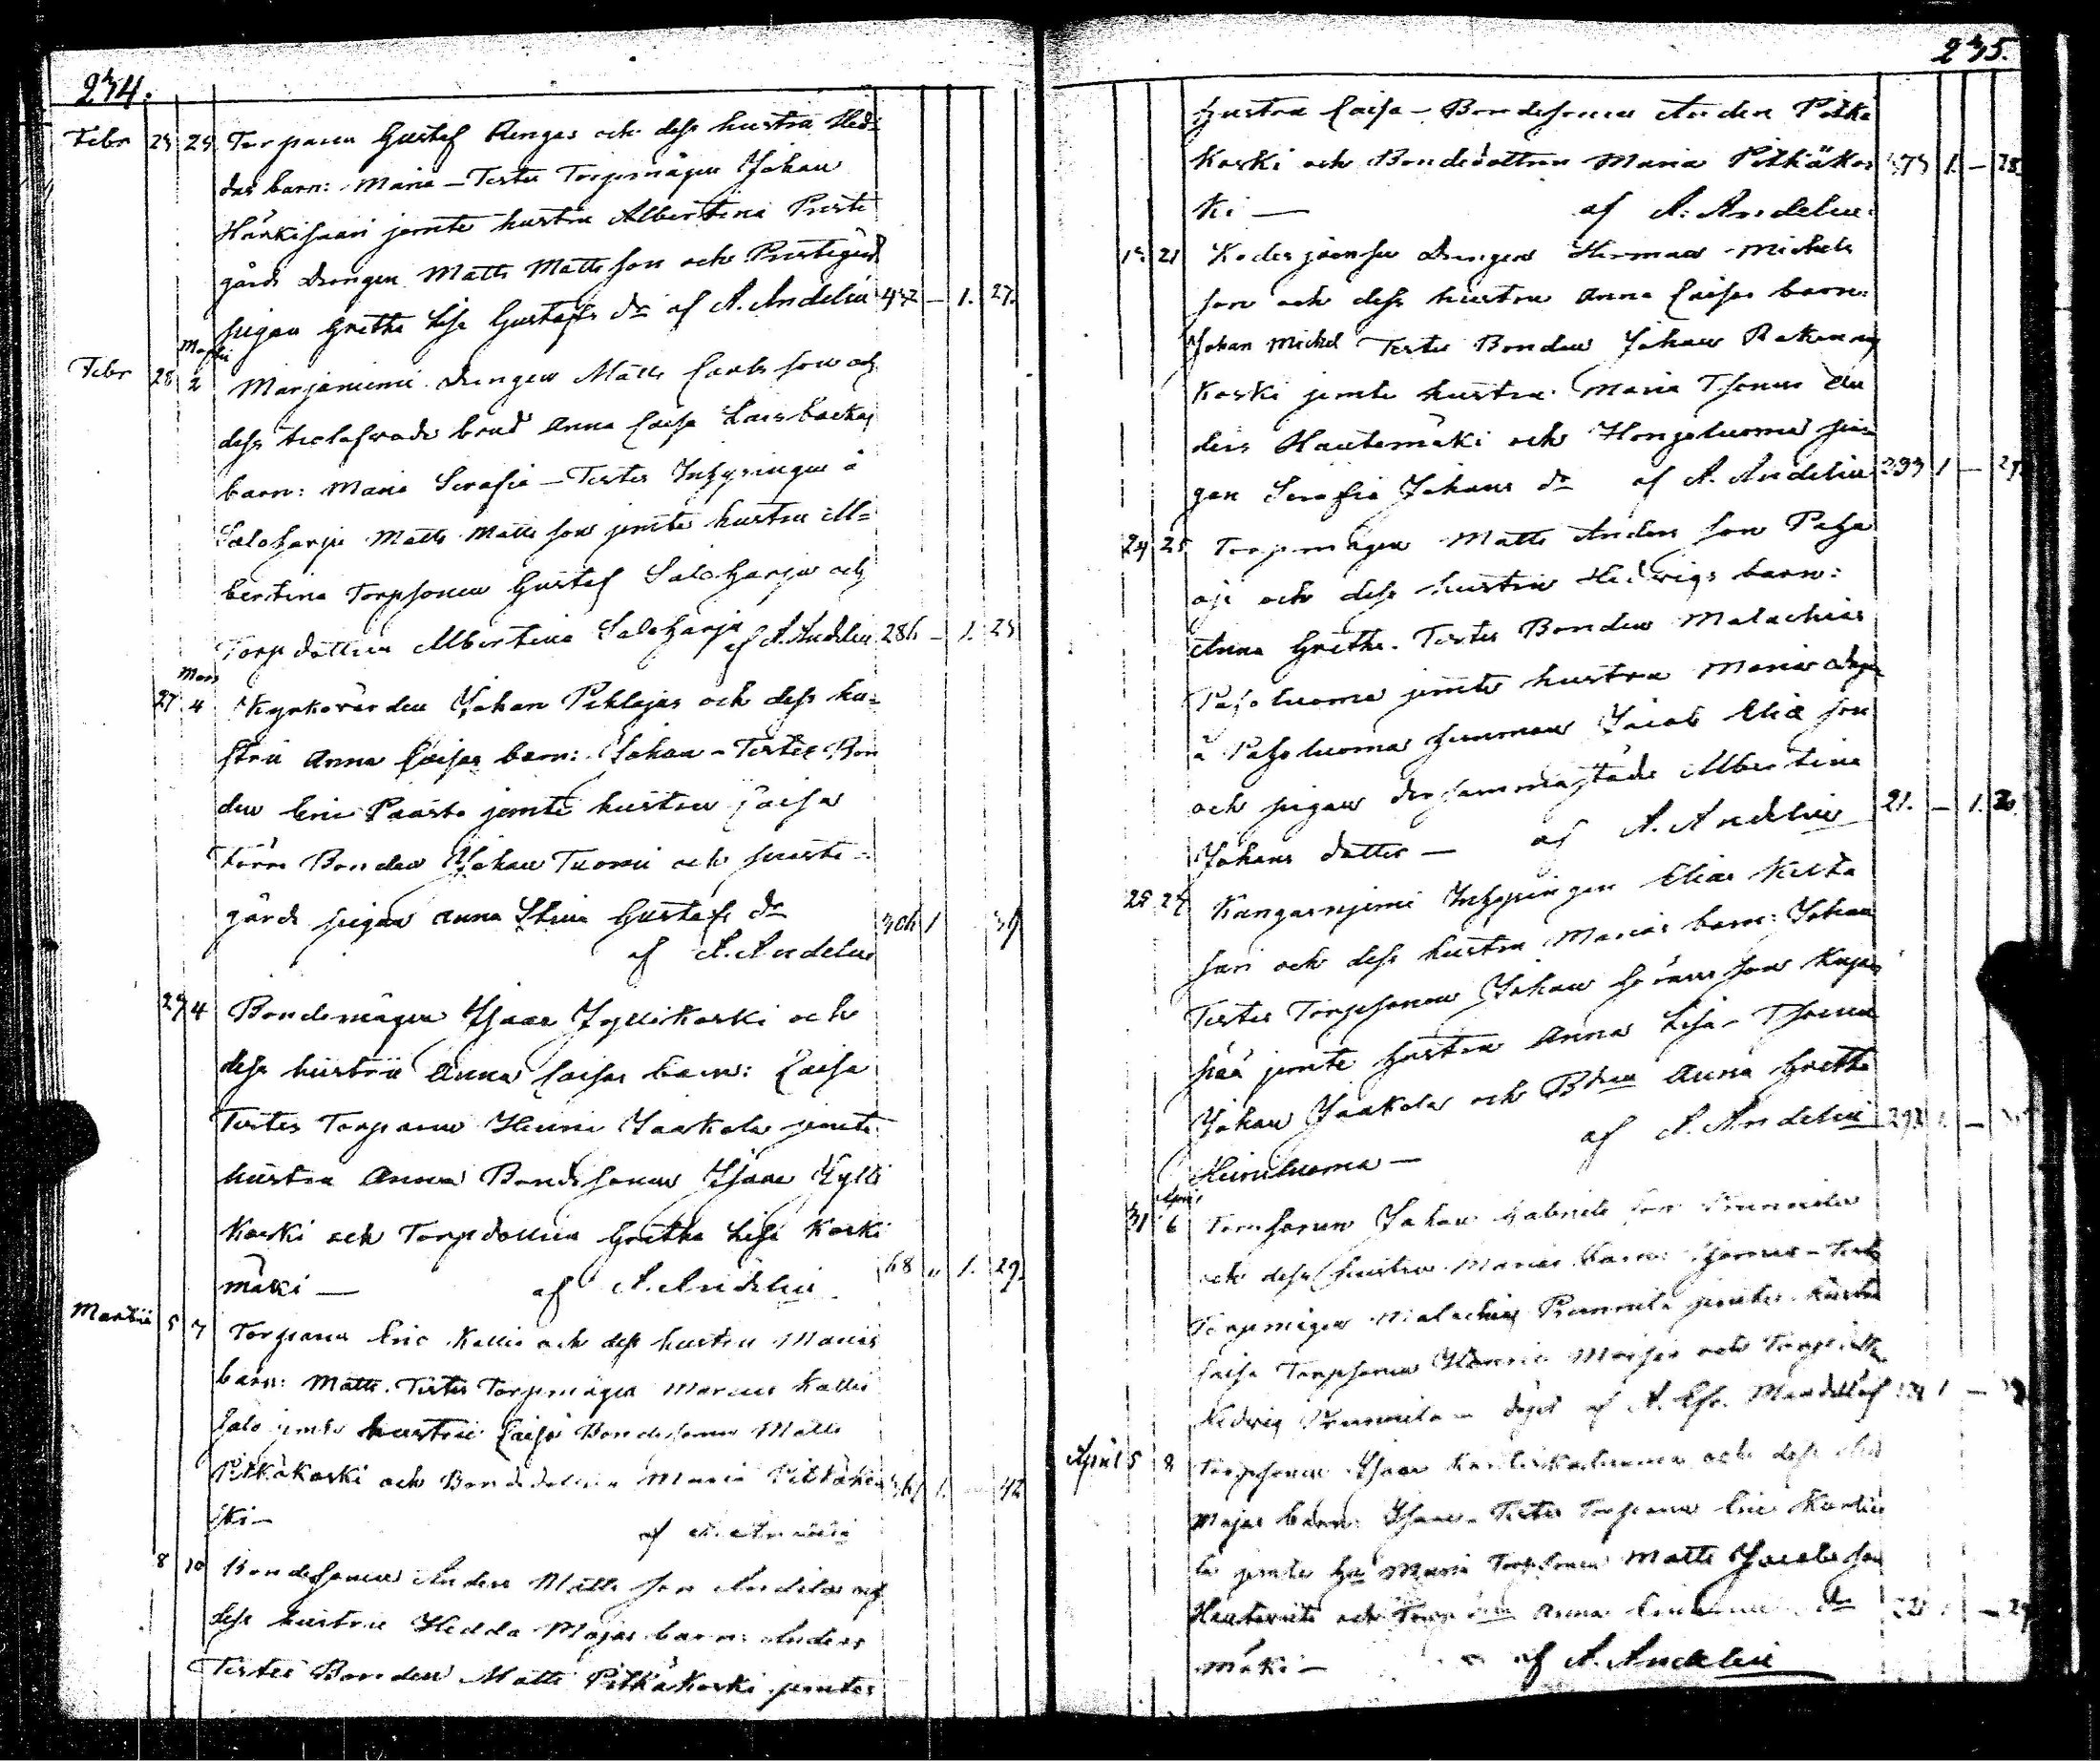 234.
Febr 23 24 Torparen Gustaf Rengas och dess hustru Hed=
das barn: Maria – Testes Torpmågen Johan
Härkisaari jemte hustru Albertina Preste
gårds Drengen Matts Mattsson och Prestegårds
pigan Gretha Lisa Gustafs dr af A. Andelin 442 – 1. 27.
Martii
Febr 28 2 Marjaniemi drengen Matts Carlsson och
dess trolofvade brud Anna Caisa Larsbackas
barn: Maria Serafia – Testes Inhysingen å
Saloharju Matts Mattsson jemte hustru Al=
bertina Torpsonen Gustaf Saloharju och
Torpdottren Albertina Saloharju af A. Andelin 286 – 1. 23
Mars
27 4 Kyrkovärden Johan Pihlajas och dess hu=
stru Anna Caisas barn: Johan – Testes Bon
den Eric Paasto jemte hustru Caisa
förre Bonden Johan Tuomi och preste=
gårds pigan Anna Stina Gustafs dr
af A. Andelin 306 1 39
29 4 Bondemågen Isaac Jyllikoski och
dess hustru Anna Caisas barn: Caisa
Testes Torparen Henric Jaakola jemte
hustru Anna Bondesonen Isaac Jylli
koski och Torpdottren Gretha Lisa Koski
mäki — af A. Andelin 68 " 1. 29.
Martii 5 7 Torparen Eric Kallio och dess hustru Marias
barn: Matts. Testes Torpmågen Marcus Kallio
salo jemte hustru Caisa Bondesonen Matts
Pitkäkoski och Bondedottren Maria Pitkäko 361 1. – 42
ski – af A. Andelin
8 10 Bondesonen Anders Mattsson Andelas och
dess hustru Hedda Majas barn: Anders
Testes Bonden Matts Pitkäkoski jemte
235.
hustru Caisa – Bondesonen Anders Pitkä
koski och Bondedottren Maria Pitkäkos 373 1. – 28.
ki — af A. Andelin.
15 21 Koderjoensuu drengen Herman Michels
son och dess hustru Anna Caisas barn:
Johan Michel Testes Bonden Johan
koski jemte hustru Maria Tsonen An
ders Hautamäki och Hongoluoma pi
gan Serafia Johans dr af A. Andelin 293 1 – 27
24 25 Torpmågen Matts Andersson Paha
oja och dess hustru Hedvigs barn:
Anna Gretha. Testes Bonden Malachias
Pajoluoma jemte hustru Maria
å Pajoluoma Jacob Elia son
och pigan dersammastäde Albertina
Johans dotter — af A. Andelin 21. – 1. 20.
25 27 Kangasniemi Inhysingen Elias Kulta
sari och dess hustru Marias barn: Johan
Testes Torpsonen Johan Göransson Kujan
pää jemte hustru Anna Lisa – Tsonen
Johan Jaakola och Bdren Anna Gretha
Heiniluoma — af A. Andelin 292 1. –
April
31 6 Torpsonen Johan Gabriels son
och dess hustru Marias barn: – Testes
Torpmågen Malachias jemte hustru
Caisa Torpsonen Henric och Torpdotter
Hedvig – döpt af A. Efr. Mandellöf 1 –
April 5 8 Torpsonen Isaac och dess
Majas barn: Isaac – Testes Torparen Eric
la jemte hu Maria Torpsonen Matts Jacobsson
och Anna dr – 29
mäki – af A. Andelin